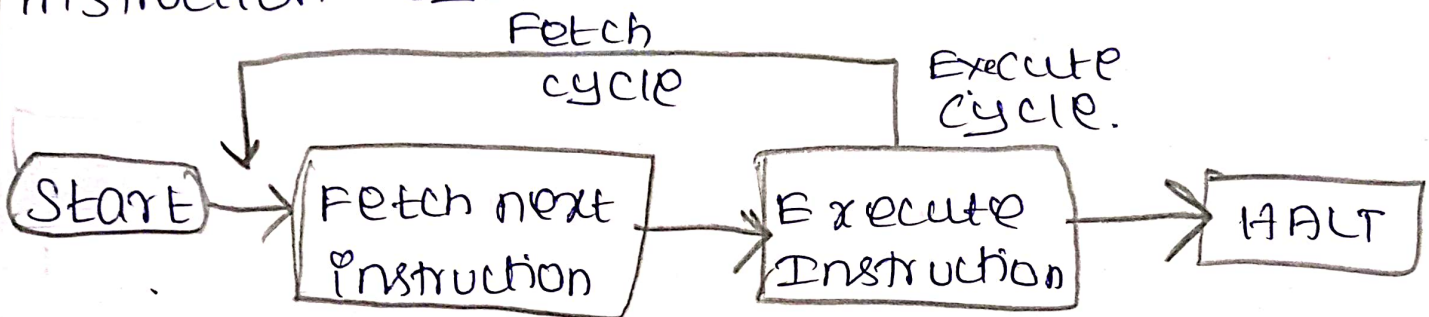 Instruction
Fetch
cycle
Execute
Cycle.
Start
Fetch next
instruction
Execute
Instruction
HALT